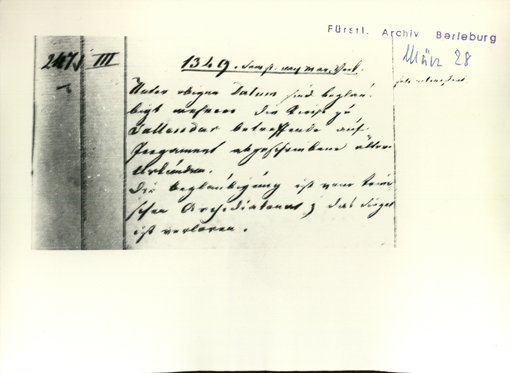 Fürstl. Archiv Berleburg
März 28
247 III
1349. Samst. nach Mar. Verk.
Unter obigem Datum sind beglau-
bigt mehrere die Kirche zu
Vallendar betreffende auf
Pergament abgeschriebene ältere
Urkunden.
Die Beglaubigung ist vom trier-
schen Archidiakonat, das Siegel
ist verloren.